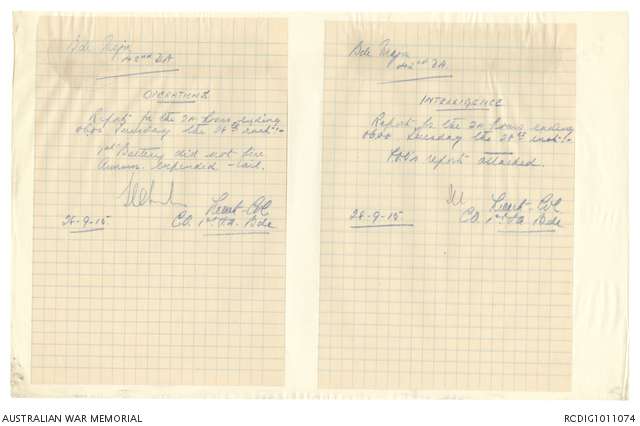 Bde Major
42nd DA
OPERATIONS
Report for the 24 hours ending
0600 Tuesday the 28th inst:-
Battery did not fire
Ammn. expended - nil.
Lieut-Col
28-9-15 CO. 1st F.A. Bde
Bde Major
42nd DA
INTELLIGENCE
Report for the 24 hours ending
0600 Tuesday the 28th inst:-
report attached.
Lieut-Col
28-9-15 CO. 1st F.A. Bde
AUSTRALIAN WAR MEMORIAL
RCDIG1011074